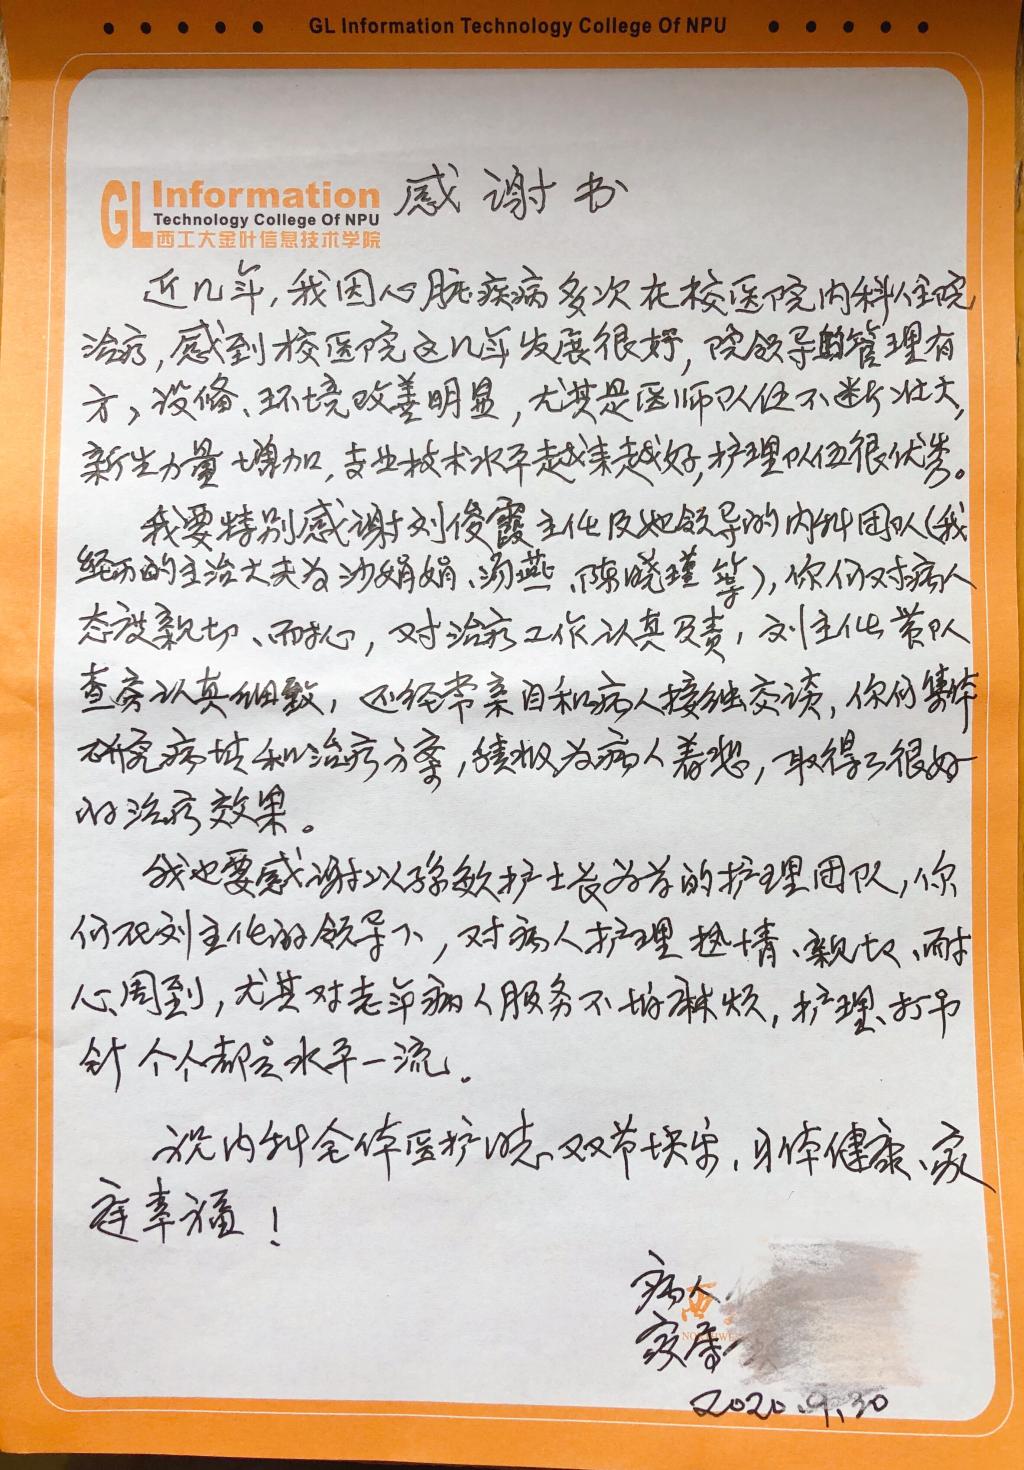 GL Information Technology College Of NPU
GL Information
Technology College Of NPU
西工大金叶信息技术学院
感谢书
近几年,我因心脏疾病多次在校医院内科住院
治疗,感到校医院这几年发展很好,院领导的管理有
方,设备、环境改善明显,尤其是医师队伍不断壮大,
新生力量增加,专业技术水平越来越好,护理队伍很优秀。
我要特别感谢刘俊霞主任及她领导的内科团队(我
经历的主治大夫为沙娟娟、汤燕、陈晓瑾等),你们对病人
态度亲切、耐心,对治疗工作认真负责,刘主任带队
查房认真细致,还经常亲自和病人接触交谈,你们集体
研究病情和治疗方案,积极为病人着想,取得了很好
的治疗效果。
我也要感谢以孙敏护士长为首的护理团队,你
们在刘主任的领导下,对病人护理热情、亲切、耐
心、周到,尤其对老年病人服务不怕麻烦,护理、打吊
针个个都是水平一流。
祝内科全体医护同志双节快乐,身体健康、家
庭幸福!
病人
家属
2020.9.30